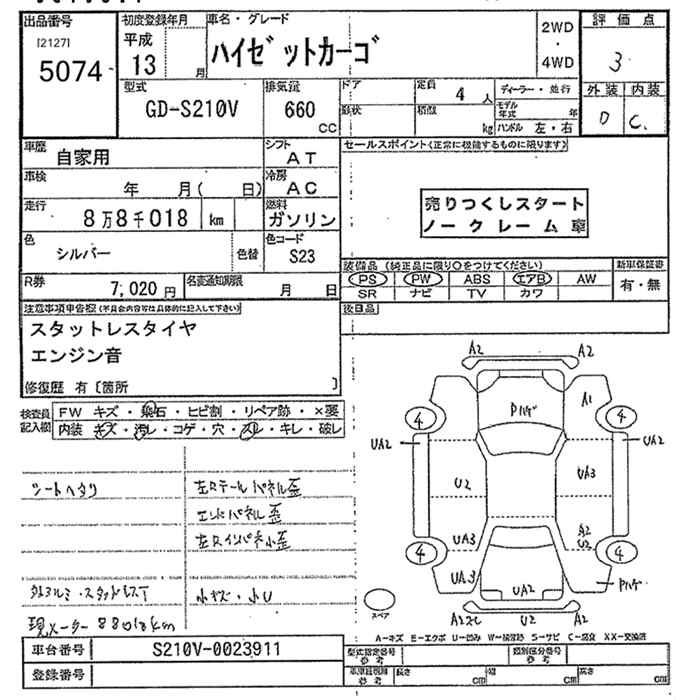 出品番号 初度登録年月 車名・グレード 2WD・4WD 評価点
[2127] 5074 平成 13 月 ハイゼットカーゴ 3
型式 排気量 ドア 定員 4人 ディーラー・並行 外装 内装
GD-S210V 660 CC 形状 積載 kg モデル年式 年 ハンドル 左・右 D C
車歴 自家用 シフト AT セールスポイント(正常に機能するものに限ります)
車検 年 月( 日) 冷房 AC
走行 8万8千018 km 燃料 ガソリン
売りつくしスタート
ノークレーム車
色 シルバー 色替 色コード S23
装備品(純正品に限り○をつけてください) 新車保証書
PS PW ABS エアB AW 有・無
SR ナビ TV カワ
R券 7,020円 名変通知期限 月 日
後日品
注意事項申告欄(不具合内容等は具体的に記入して下さい)
スタットレスタイヤ
エンジン音
修復歴 有〔箇所 〕
検査員記入欄 FW キズ・飛石・ヒビ割・リペア跡・×要
内装 キズ・汚レ・コゲ・穴・スレ・キレ・破レ
シートヘタリ
左Rテールパネル歪
エンドパネル歪
左Rインパネ小歪
外アルミ・スタットレスT
小キズ・小U
現メーター 88018km
A2 A2
A1
4 4
UA2 UA2
U2 UA3
UA3 A2 U2
4 4
UA3 UA2
スペア
U2 A2
A=キズ E=エクボ U=凹み W=補修跡 S=サビ C=腐食 XX=交換済
車台番号 S210V-0023911
型式指定番号 参考 類別区分番号 参考
登録番号
長さ cm 幅 cm 高さ cm